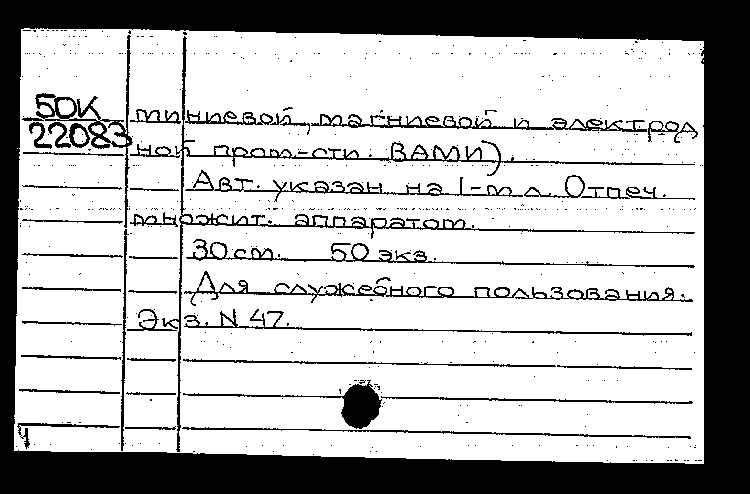 50К
22083
миниевой, магниевой и электрод
ной пром-сти. ВАМИ).
Авт. указан на 1-м л. Отпеч.
множит. аппаратом.
30 см. 50 экз.
Для служебного пользования.
Экз. N 47.